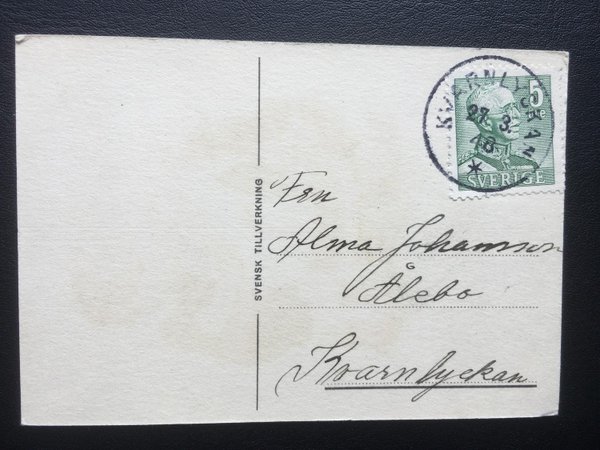 KVARNLYCKAN
27.3.
48
5
SVERIGE
SVENSK TILLVERKNING
Fru
Alma Johansson
Ålebo
Kvarnlyckan